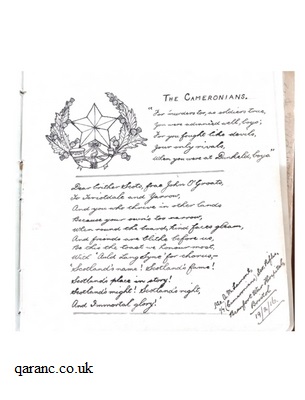 THE CAMERONIANS.
"For murders too, as soldiers true,
You were advanced well, boys;
For you fought like devils,
Your only rivals,
When you were at Dunkeld, boys"
Dear brither Scots, frae John O'Groats,
To Teviotdale and Yarrow,
And you who thrive in other lands
Because your own's too narrow,
When round the board, kind faces gleam,
And friends are blithe before us,
Be this the toast we honour most,
With 'Auld Lang Syne' for chorus,—
'Scotland's name! Scotland's fame!
Scotland's place in story!
Scotland's might! Scotland's right,
And Immortal glory!'
Scot. Rifles
Beaufort War Hospital
Bristol
qaranc.co.uk